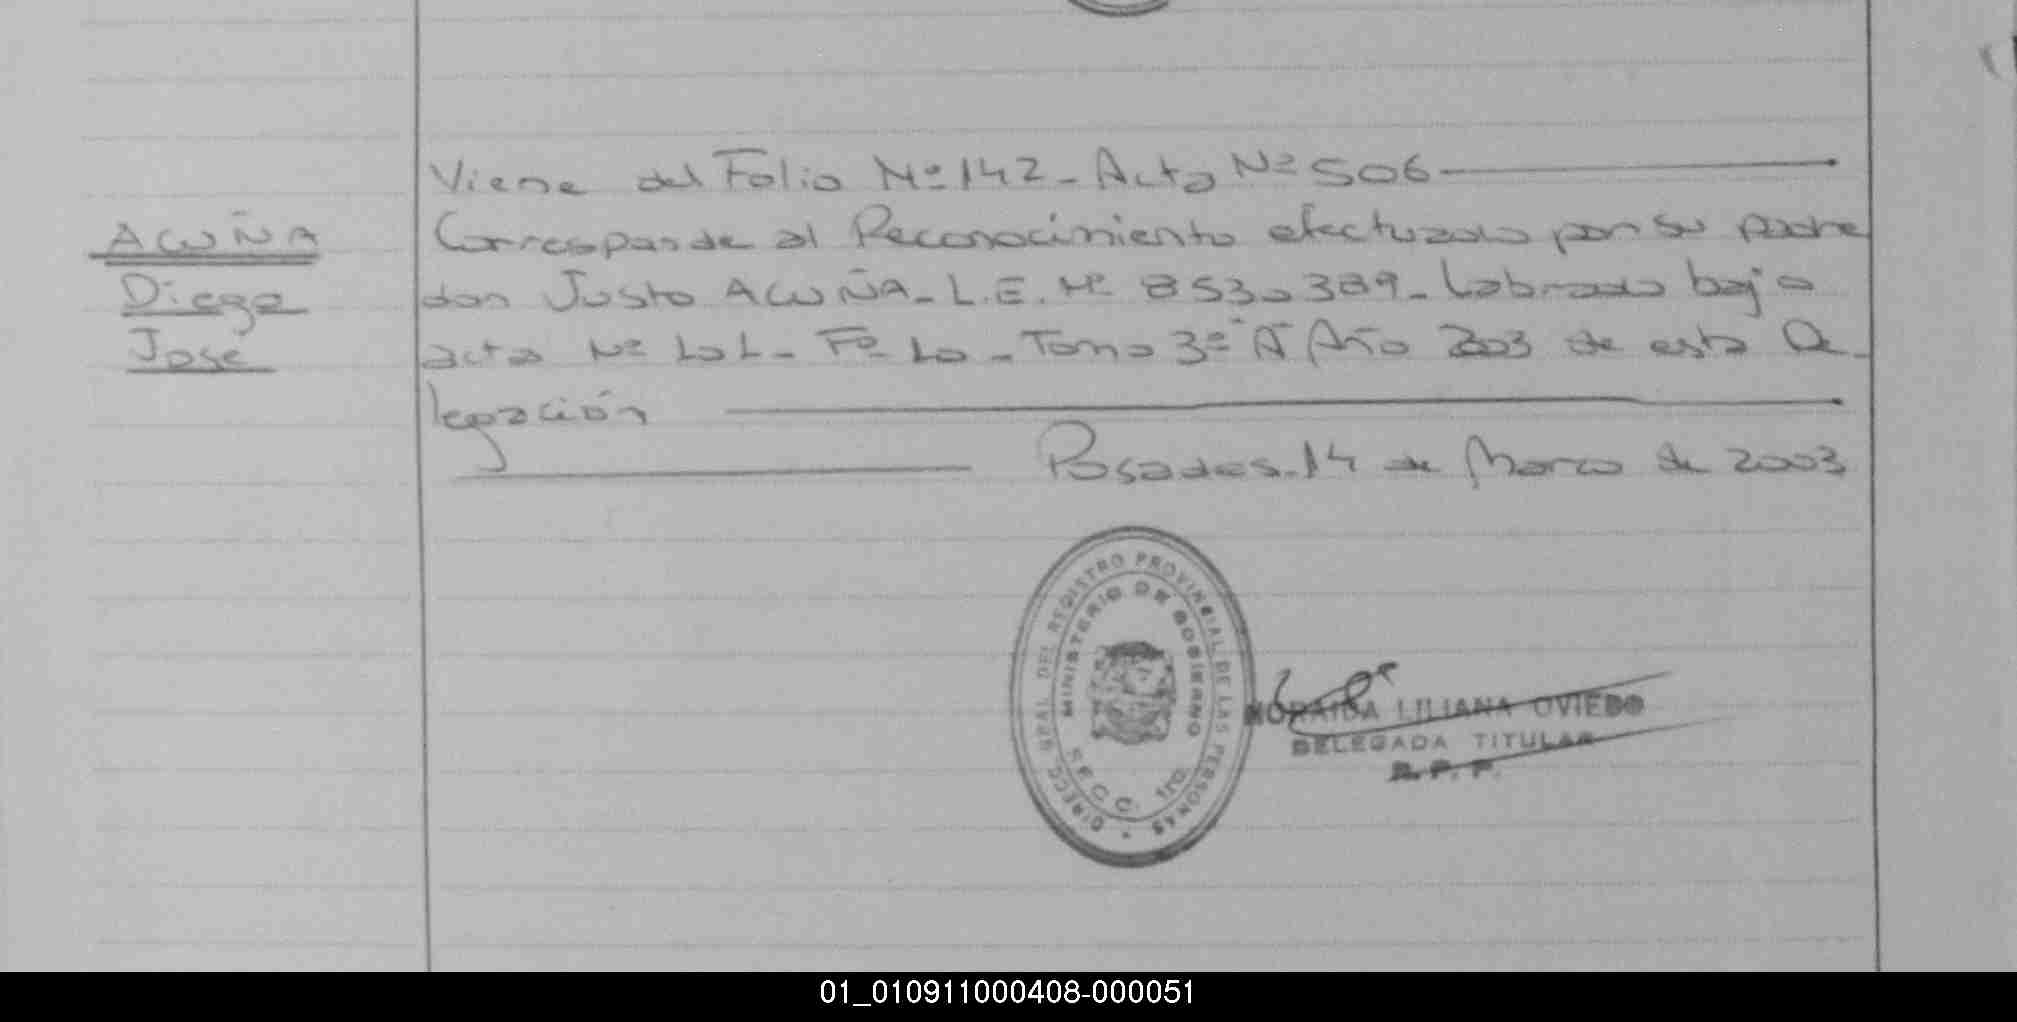 Viene del Folio Nº 142 - Acta Nº 506
ACUÑA
Diego
José
Corresponde al Reconocimiento efectuado por su padre
don Justo ACUÑA - L.E. Nº 853.389 - labrado bajo
acta Nº - Fº - Tomo 3º "A" Año 2003 de esta De-
legación
Posadas, 14 de Marzo de 2003
DIRECC. GRAL. DEL REGISTRO PROVINCIAL DE LAS PERSONAS
MINISTERIO DE GOBIERNO
SECC. 1ra.
NORAIDA LILIANA OVIEDO
DELEGADA TITULAR
R. P. P.
01_010911000408-000051